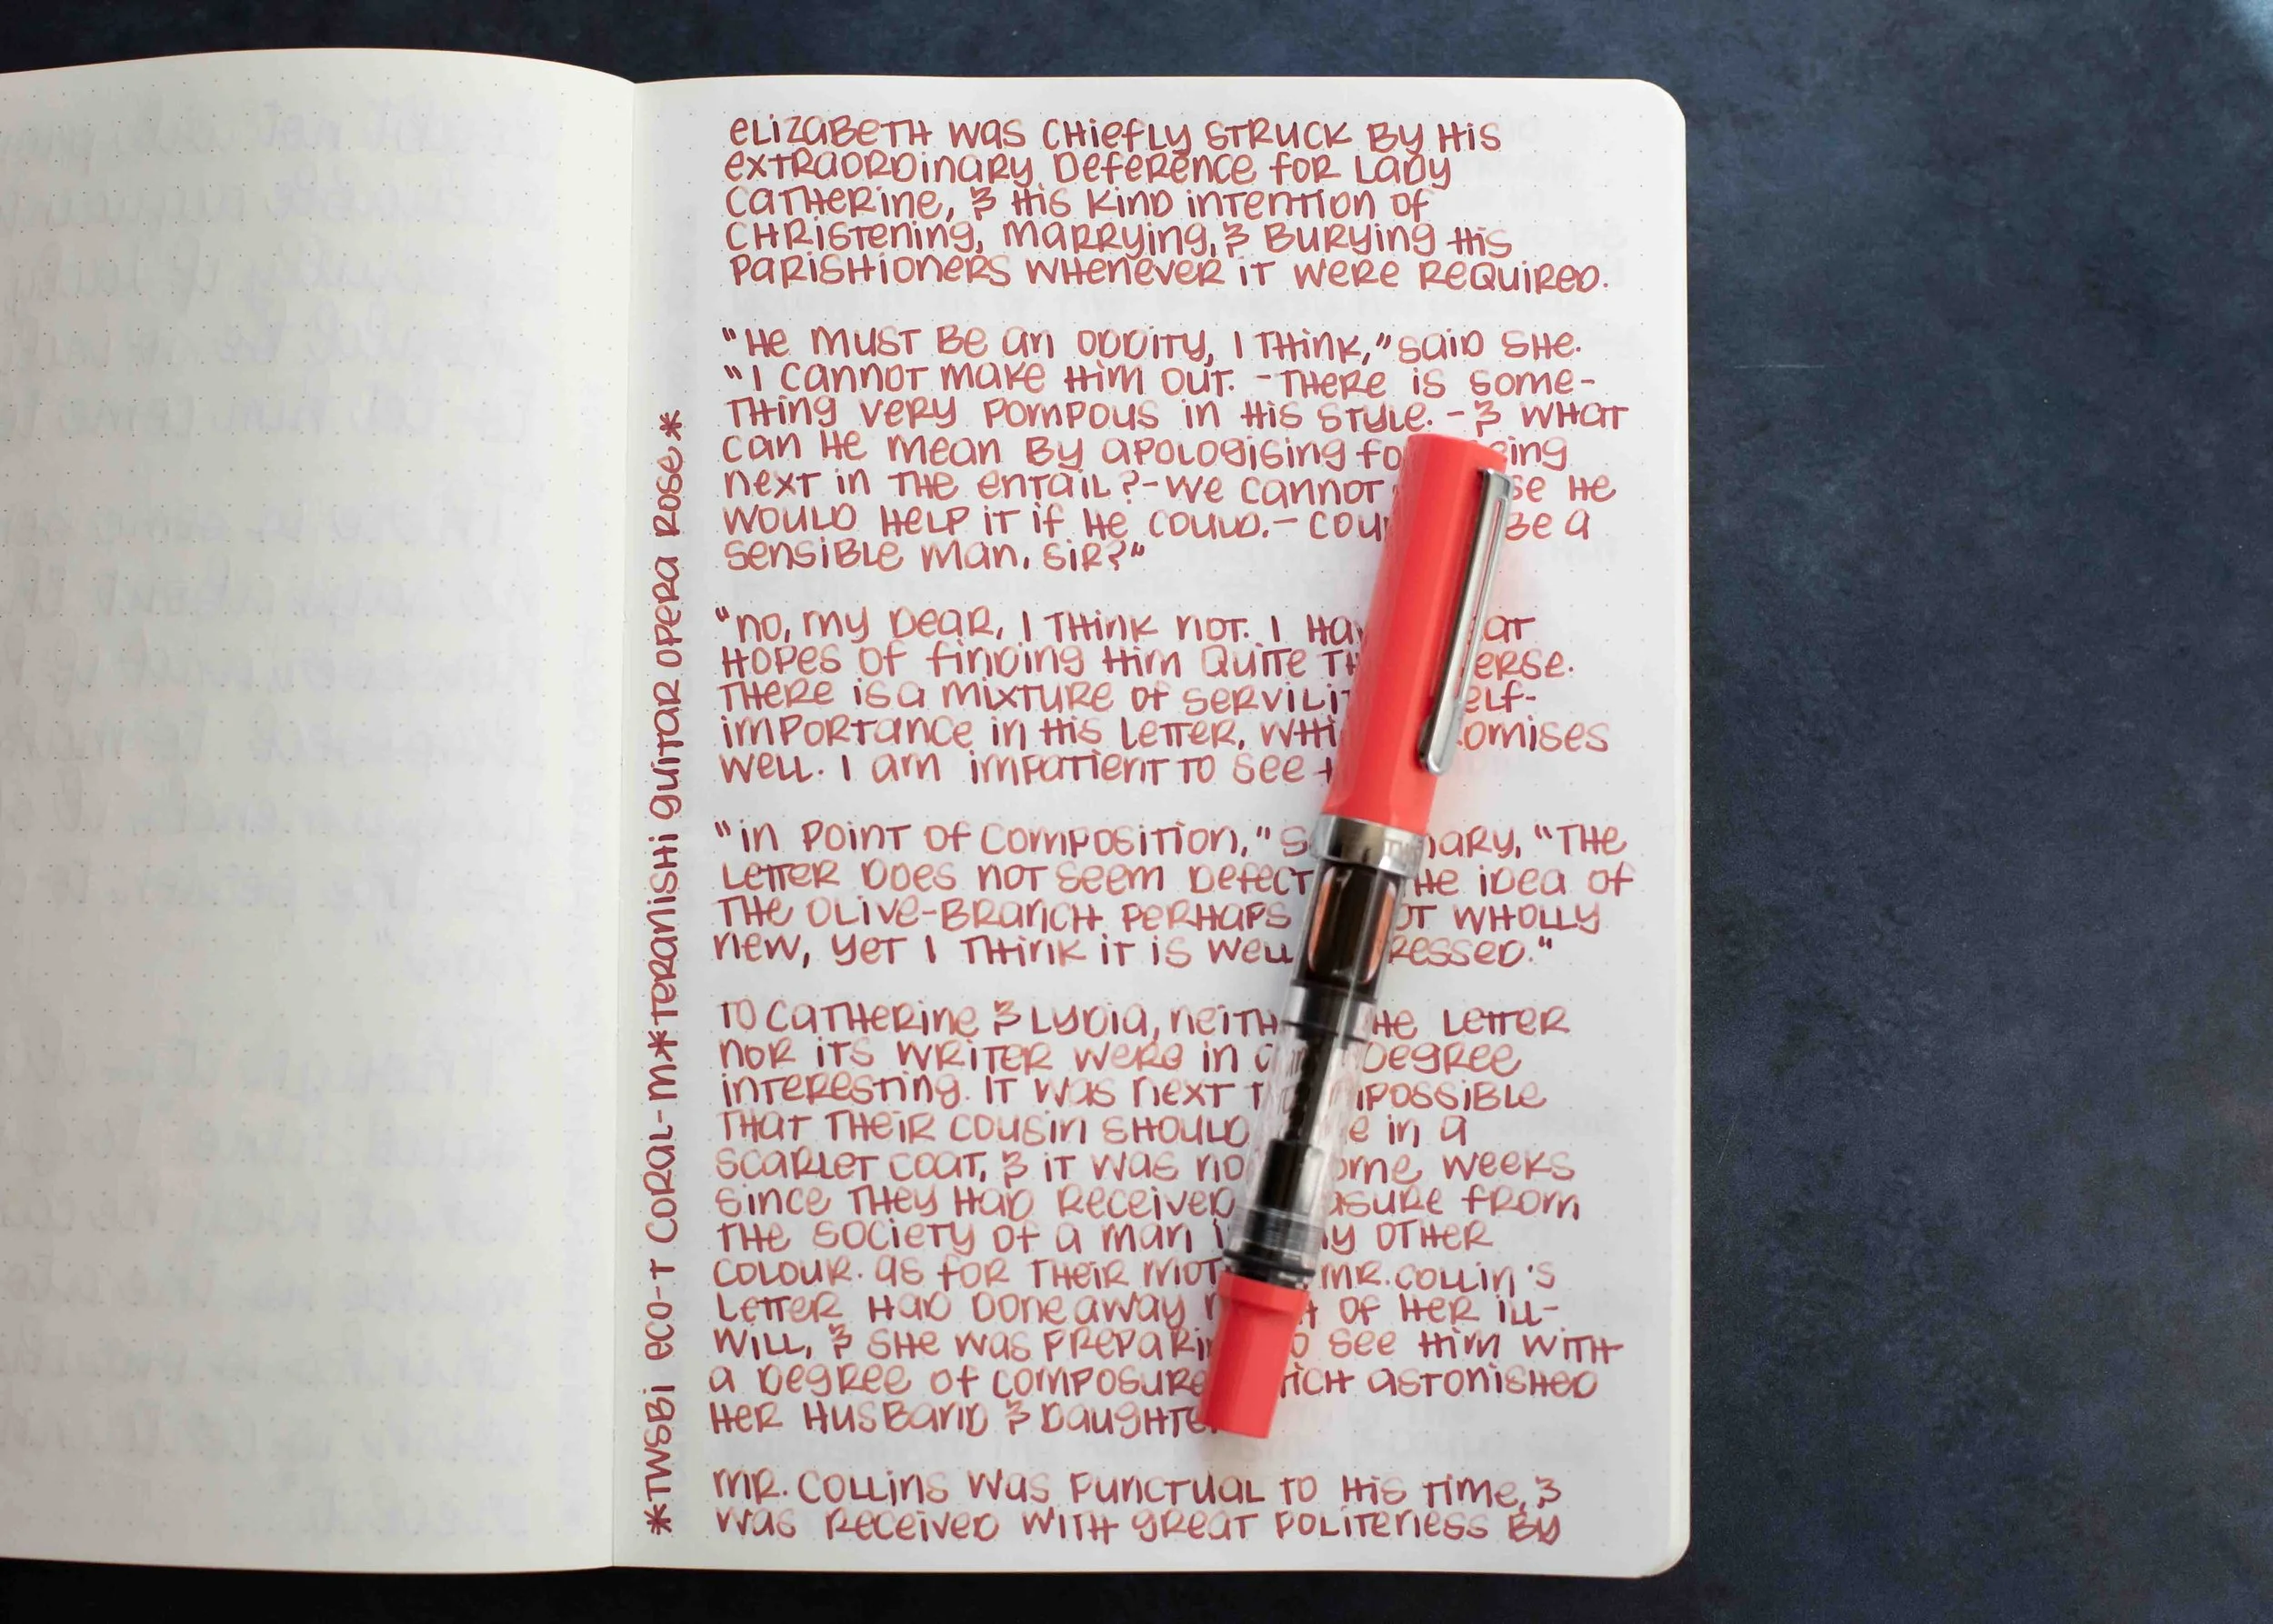 *TWSBI ECO-T CORAL-M*TERANISHI GUITAR OPERA ROSE*
ELIZABETH WAS CHIEFLY STRUCK BY HIS
EXTRAORDINARY DEFERENCE FOR LADY
CATHERINE, & HIS KIND INTENTION OF
CHRISTENING, MARRYING, & BURYING HIS
PARISHIONERS WHENEVER IT WERE REQUIRED.
"HE MUST BE AN ODDITY, I THINK," SAID SHE.
"I CANNOT MAKE HIM OUT. -THERE IS SOME-
THING VERY POMPOUS IN HIS STYLE. - & WHAT
CAN HE MEAN BY APOLOGISING
NEXT IN THE ENTAIL?-WE CANNOT HE
WOULD HELP IT IF HE COULD.- BE A
SENSIBLE MAN, SIR?"
"NO, MY DEAR, I THINK NOT. I
HOPES OF FINDING HIM QUITE
THERE IS A MIXTURE OF
IMPORTANCE IN HIS LETTER,
WELL. I AM IMPATIENT TO SEE
"IN POINT OF COMPOSITION," MARY, "THE
LETTER DOES NOT SEEM IDEA OF
THE OLIVE-BRANCH PERHAPS WHOLLY
NEW, YET I THINK IT IS WELL
TO CATHERINE & LYDIA, LETTER
NOR ITS WRITER WERE IN DEGREE
INTERESTING. IT WAS NEXT
THAT THEIR COUSIN SHOULD IN A
SCARLET COAT, & IT WAS WEEKS
SINCE THEY HAD RECEIVED FROM
THE SOCIETY OF A MAN OTHER
COLOUR. AS FOR THEIR MR. COLLIN'S
LETTER HAD DONE AWAY OF HER ILL-
WILL, & SHE WAS SEE HIM WITH
A DEGREE OF COMPOSURE ASTONISHED
HER HUSBAND &
MR. COLLINS WAS PUNCTUAL TO HIS TIME, &
WAS RECEIVED WITH GREAT POLITENESS BY